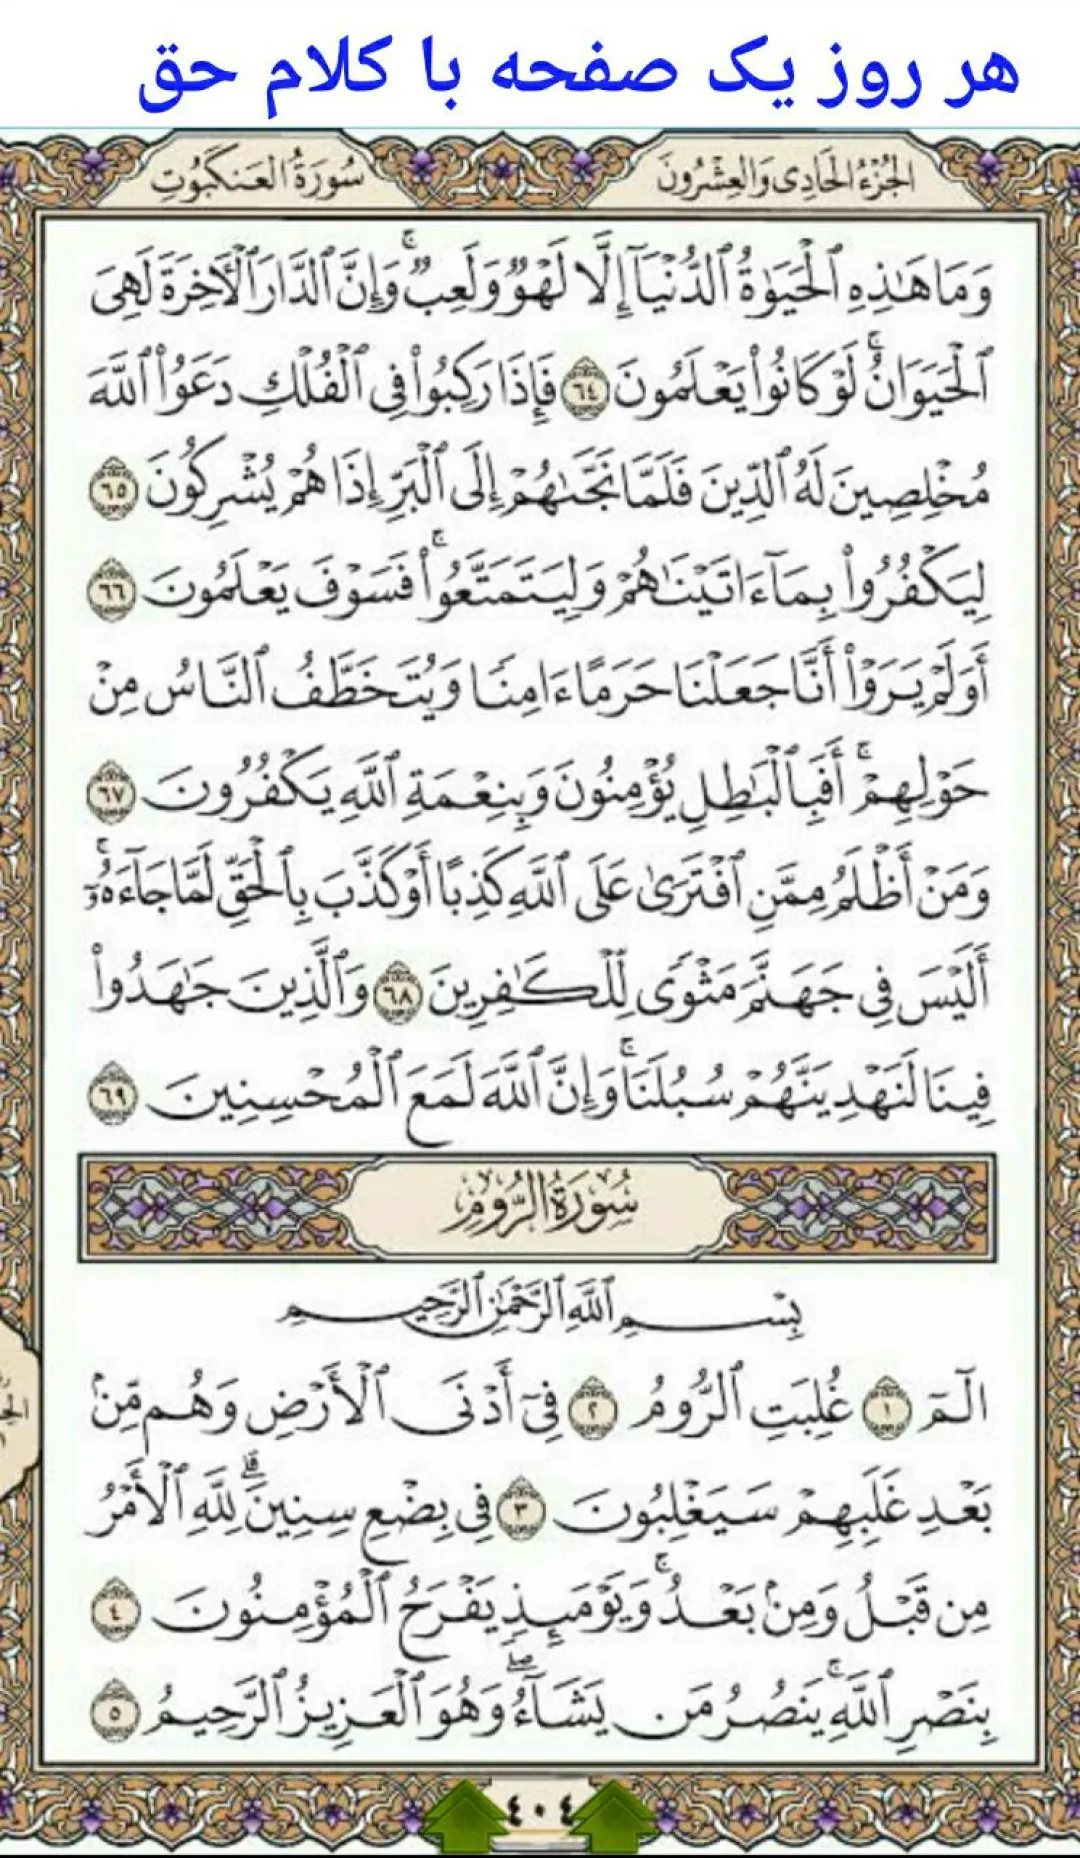 هر روز یک صفحه با کلام حق
الجُزْءُ الحَادِى وَالعِشْرُونَ
سُورَةُ العَنكَبُوتِ
وَمَا هَـٰذِهِ ٱلْحَيَوٰةُ ٱلدُّنْيَآ إِلَّا لَهْوٌ وَلَعِبٌ ۚ وَإِنَّ ٱلدَّارَ ٱلْـَٔاخِرَةَ لَهِىَ
ٱلْحَيَوَانُ ۚ لَوْ كَانُوا۟ يَعْلَمُونَ ٦٤ فَإِذَا رَكِبُوا۟ فِى ٱلْفُلْكِ دَعَوُا۟ ٱللَّهَ
مُخْلِصِينَ لَهُ ٱلدِّينَ فَلَمَّا نَجَّىٰهُمْ إِلَى ٱلْبَرِّ إِذَا هُمْ يُشْرِكُونَ ٦٥
لِيَكْفُرُوا۟ بِمَآ ءَاتَيْنَـٰهُمْ وَلِيَتَمَتَّعُوا۟ ۚ فَسَوْفَ يَعْلَمُونَ ٦٦
أَوَلَمْ يَرَوْا۟ أَنَّا جَعَلْنَا حَرَمًا ءَامِنًا وَيُتَخَطَّفُ ٱلنَّاسُ مِنْ
حَوْلِهِمْ ۚ أَفَبِٱلْبَـٰطِلِ يُؤْمِنُونَ وَبِنِعْمَةِ ٱللَّهِ يَكْفُرُونَ ٦٧
وَمَنْ أَظْلَمُ مِمَّنِ ٱفْتَرَىٰ عَلَى ٱللَّهِ كَذِبًا أَوْ كَذَّبَ بِٱلْحَقِّ لَمَّا جَآءَهُۥٓ ۚ
أَلَيْسَ فِى جَهَنَّمَ مَثْوًى لِّلْكَـٰفِرِينَ ٦٨ وَٱلَّذِينَ جَـٰهَدُوا۟
فِينَا لَنَهْدِيَنَّهُمْ سُبُلَنَا ۚ وَإِنَّ ٱللَّهَ لَمَعَ ٱلْمُحْسِنِينَ ٦٩
سُورَةُ الرُّومِ
بِسْمِ ٱللَّهِ ٱلرَّحْمَـٰنِ ٱلرَّحِيمِ
الٓمٓ ١ غُلِبَتِ ٱلرُّومُ ٢ فِىٓ أَدْنَى ٱلْأَرْضِ وَهُم مِّنۢ
بَعْدِ غَلَبِهِمْ سَيَغْلِبُونَ ٣ فِى بِضْعِ سِنِينَ ۗ لِلَّهِ ٱلْأَمْرُ
مِن قَبْلُ وَمِنۢ بَعْدُ ۚ وَيَوْمَئِذٍ يَفْرَحُ ٱلْمُؤْمِنُونَ ٤
بِنَصْرِ ٱللَّهِ ۚ يَنصُرُ مَن يَشَآءُ ۖ وَهُوَ ٱلْعَزِيزُ ٱلرَّحِيمُ ٥
٤٠٤